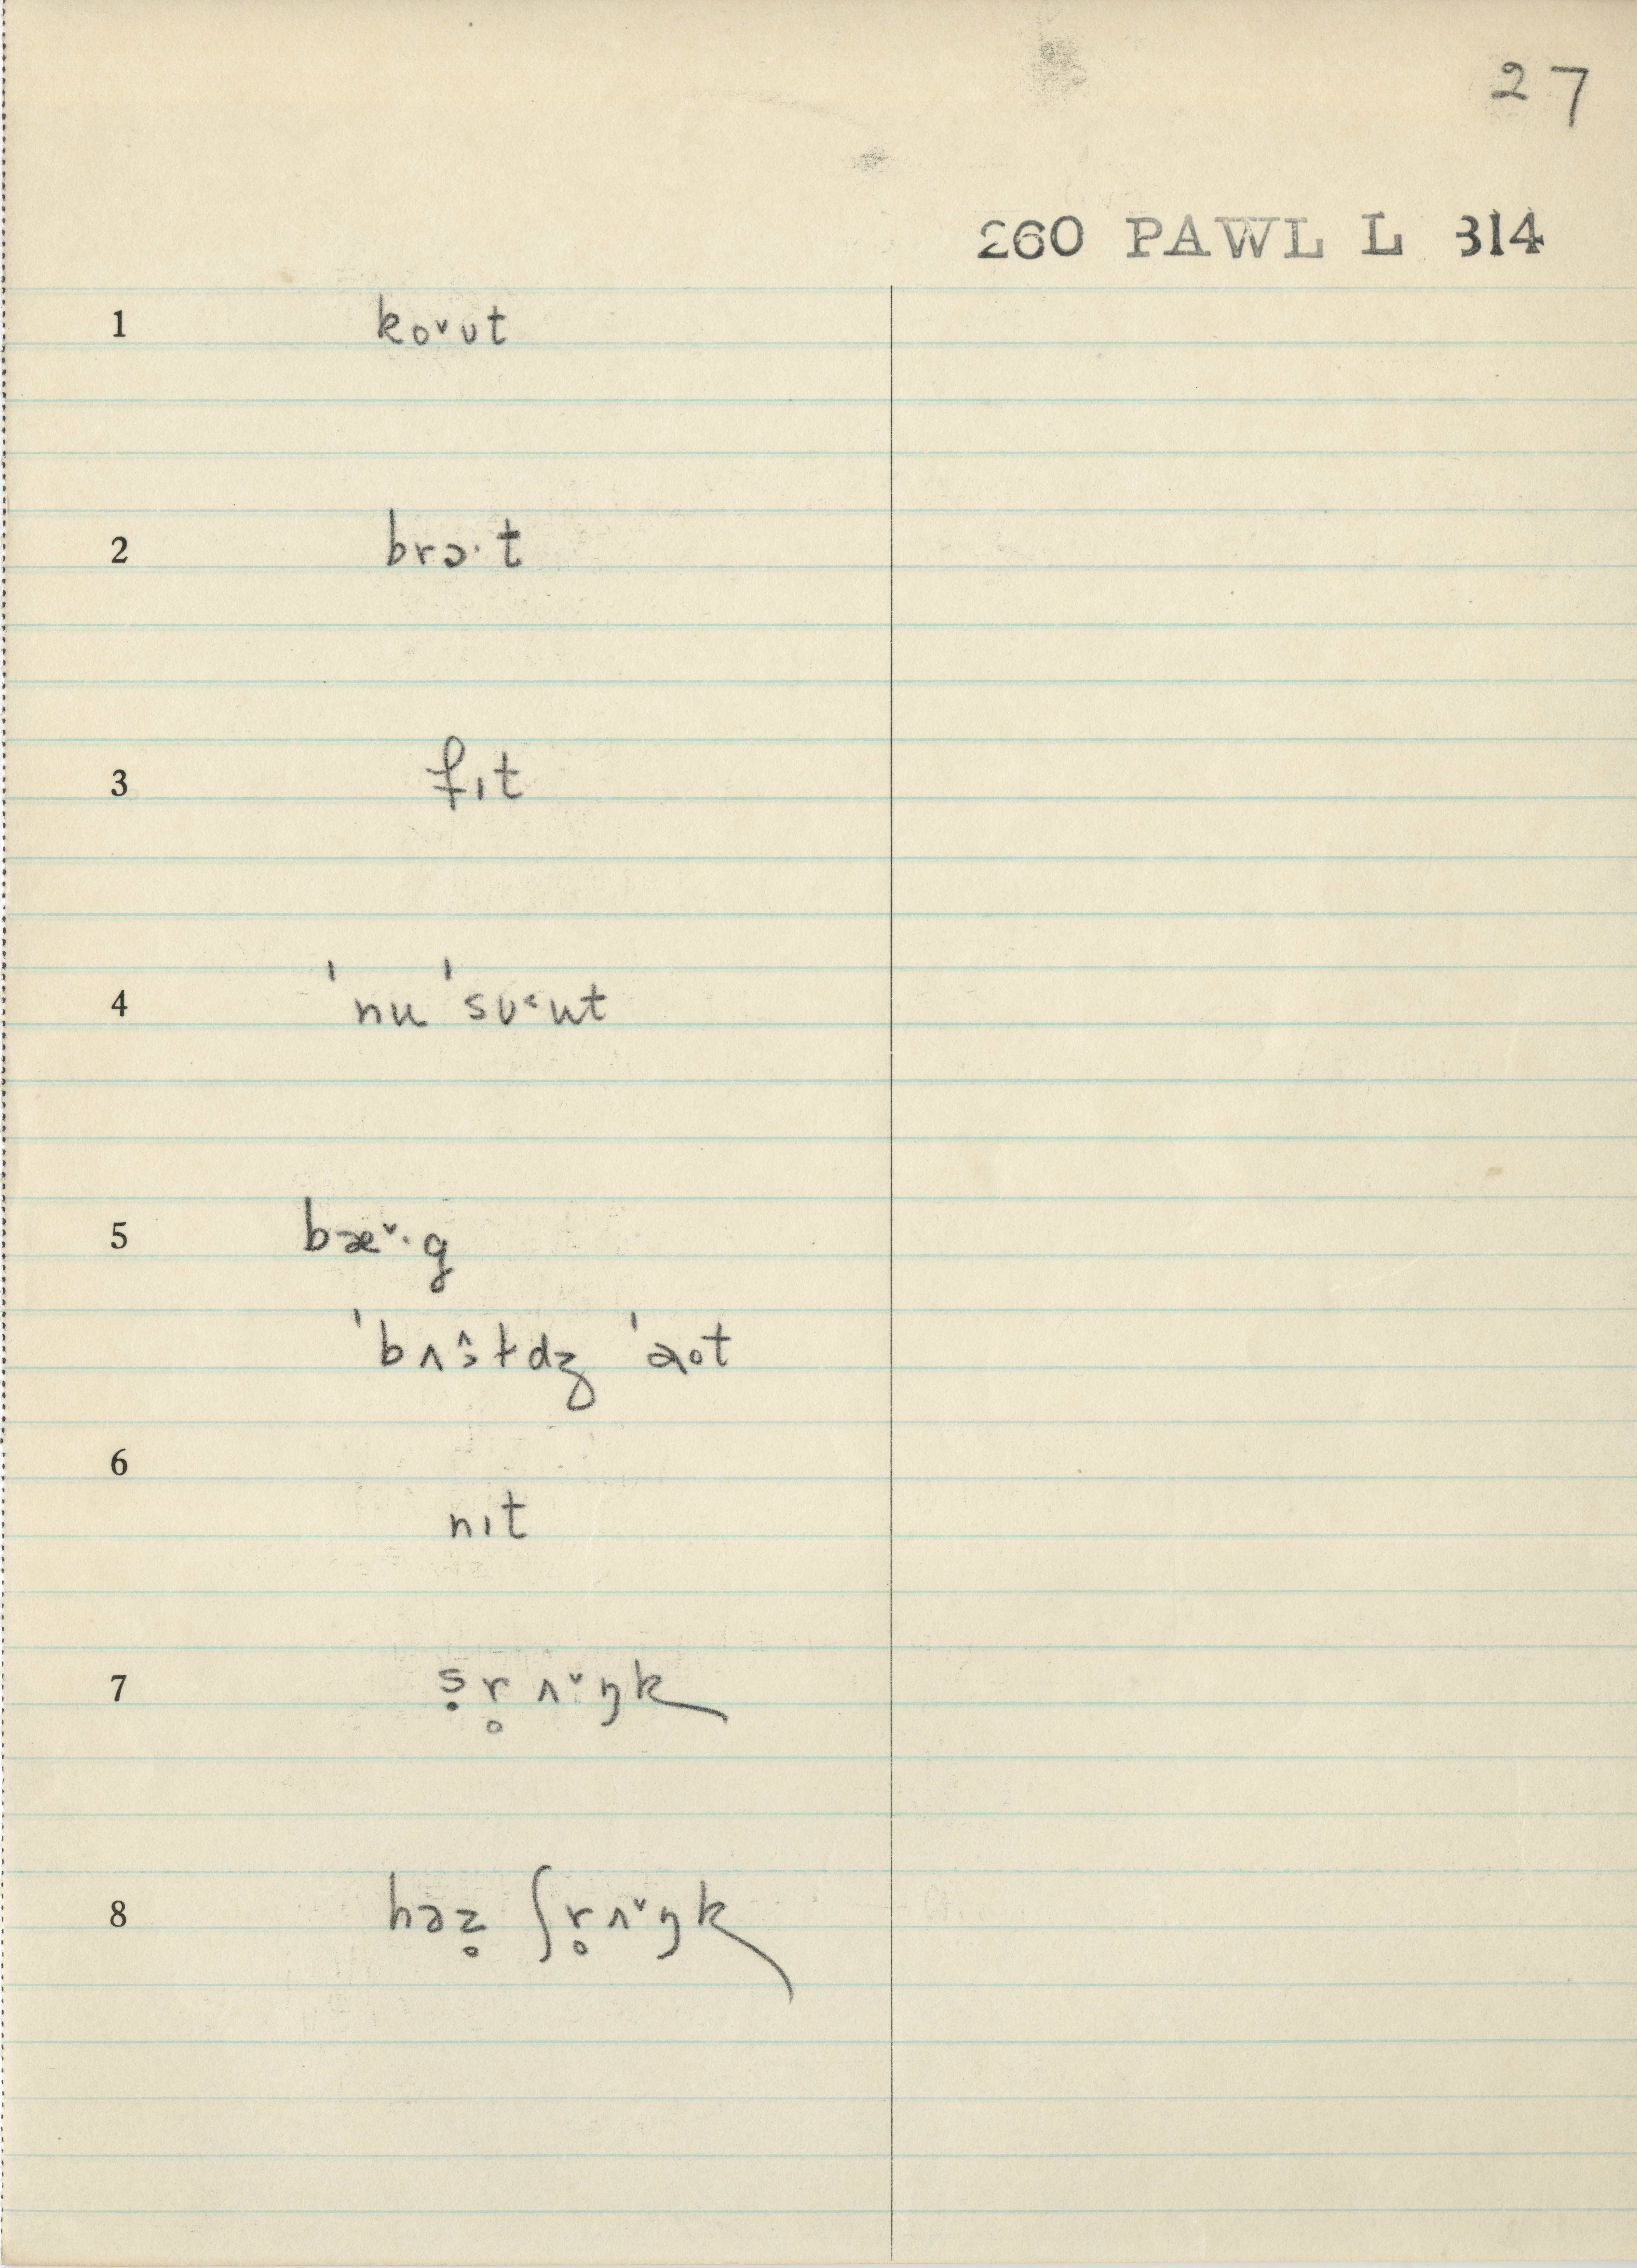 27
260 PAWL L 314
1 ko˅ʊt
2 brɔ·t
3 fɪt
4 ˈnu ˈsʊ˂ut
5 bæ˅·g
ˈbʌ˄ɔɫdʒ ˈaot
6
nɪt
7 ṣr̥ʌ˅ŋk
8 həz̥ ʃr̥ʌ˅ŋk